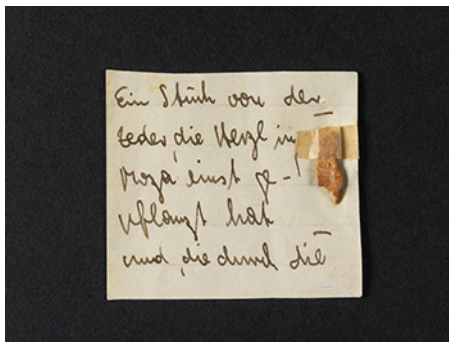 Ein Stück von der
Zeder, die Herzl in
Moza einst ge-
pflanzt hat
und, die durch die